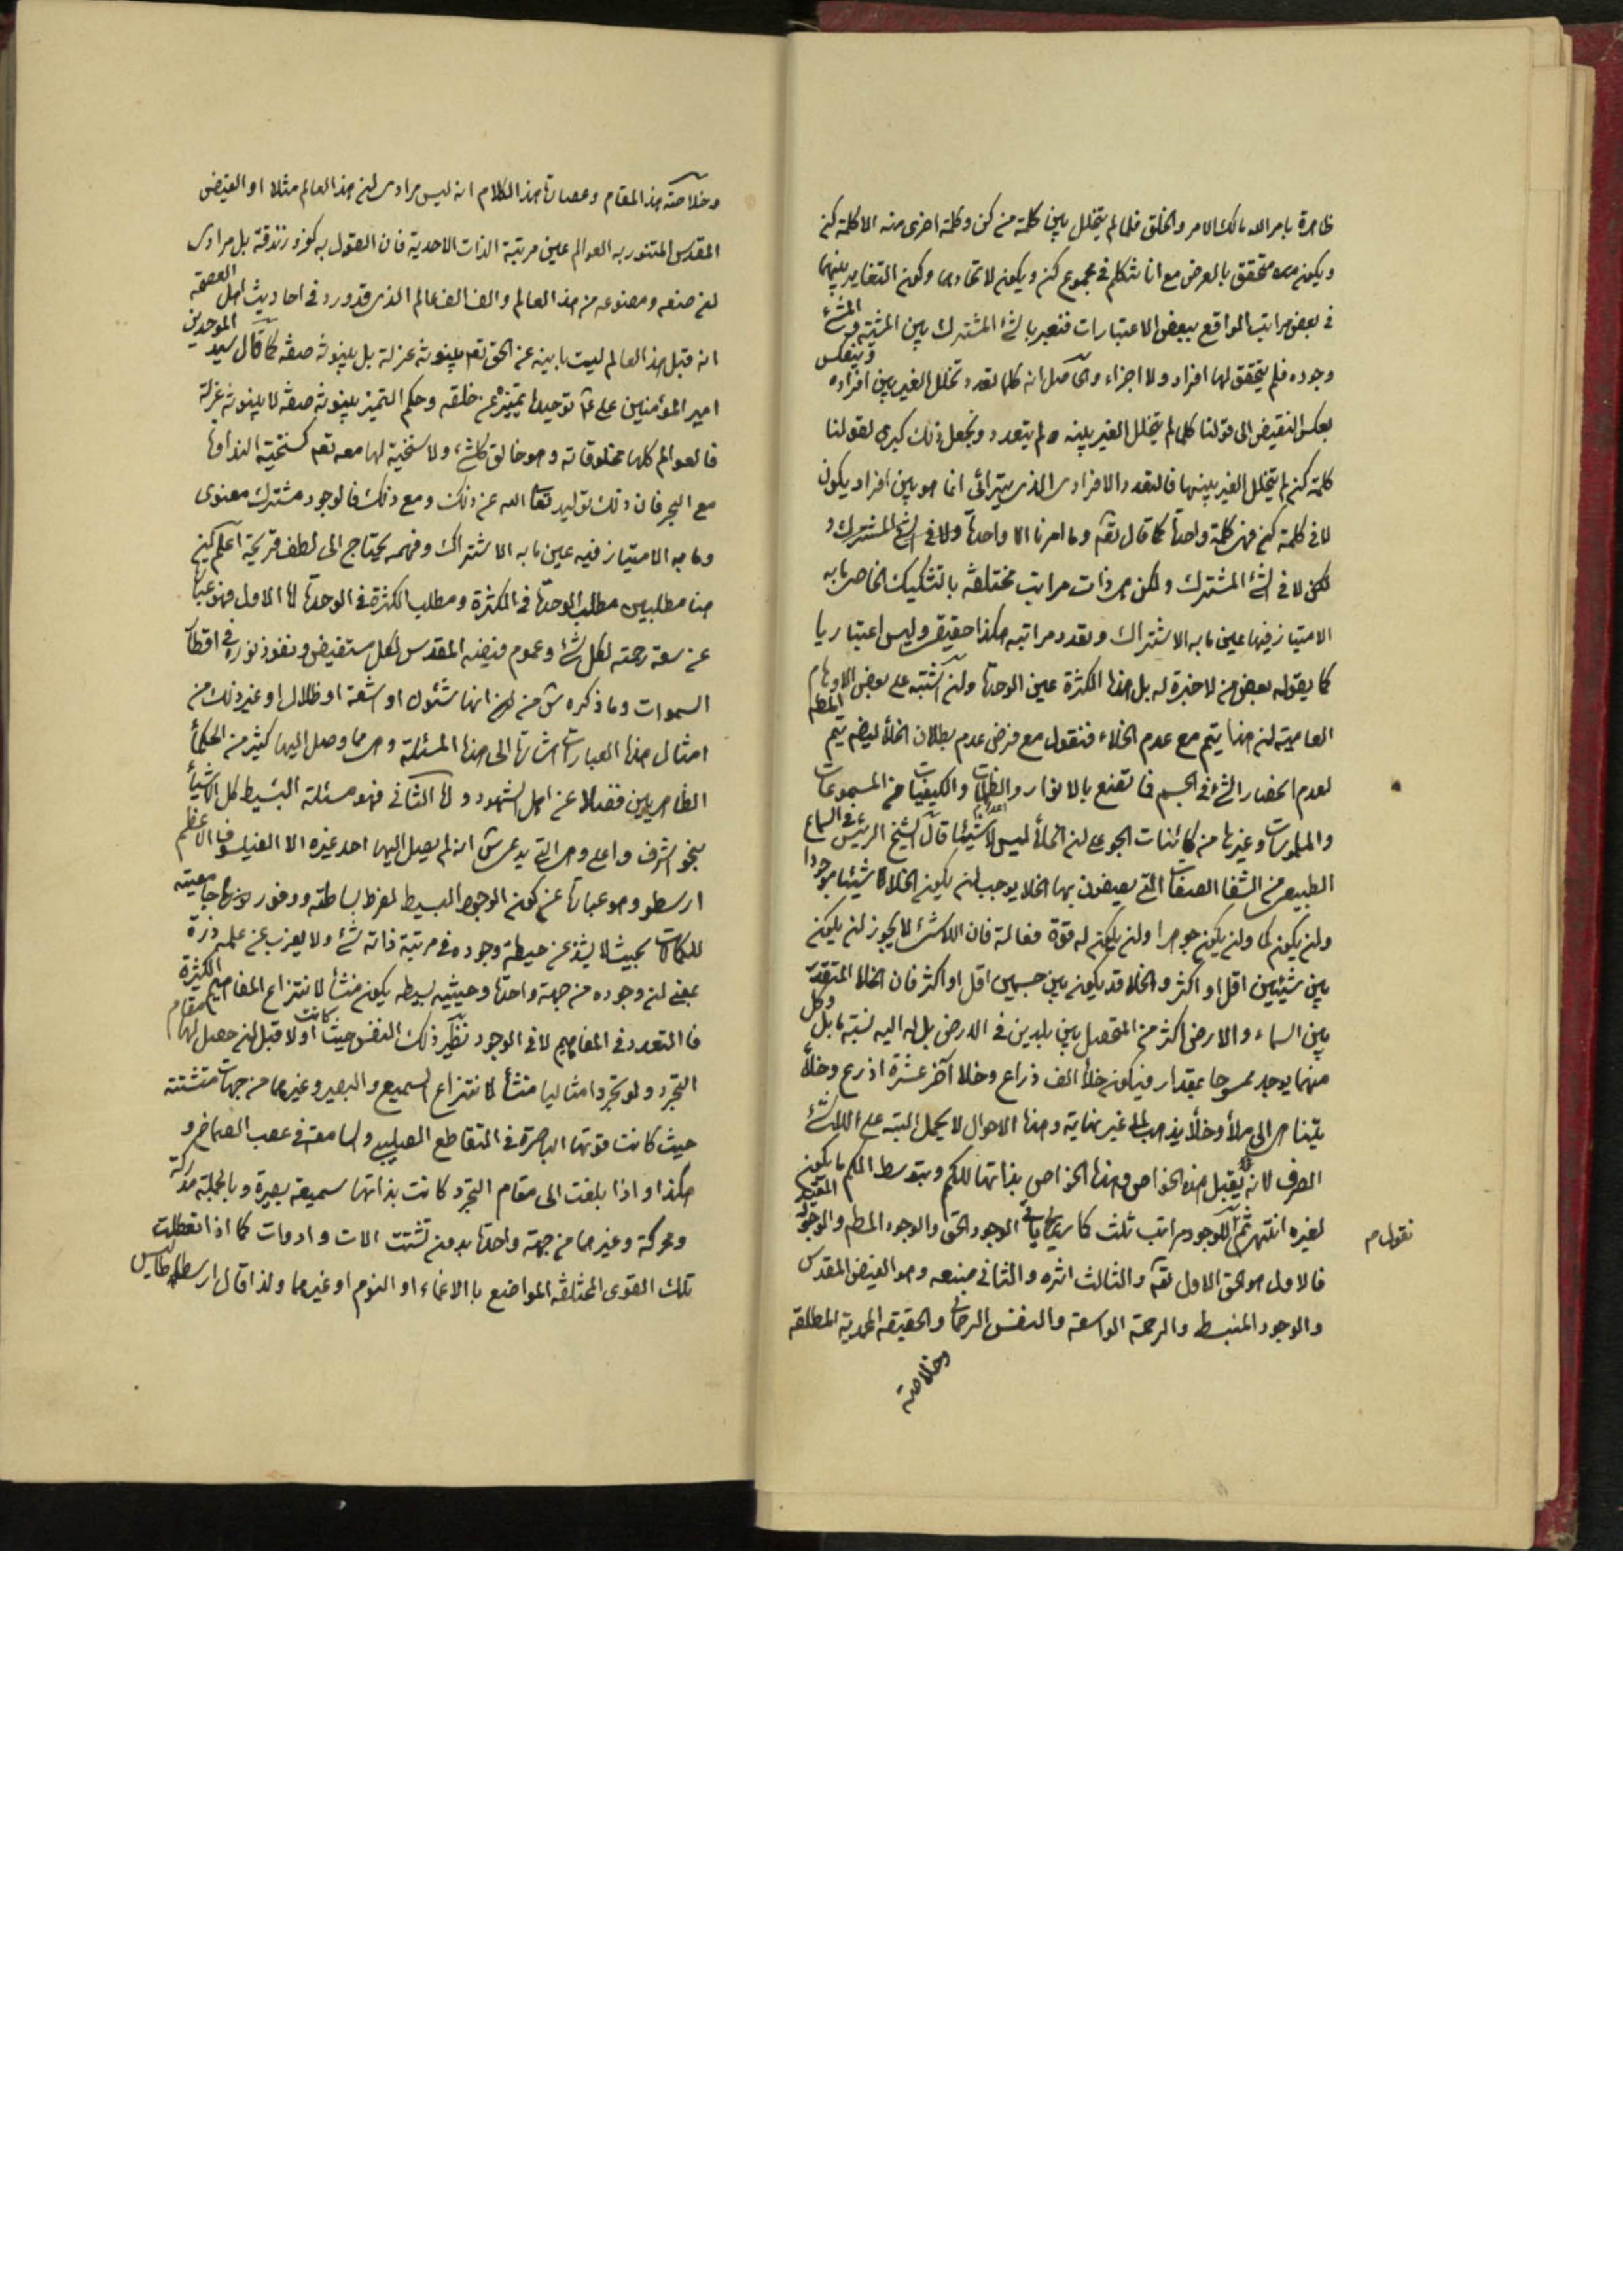 ظاهرة بامر الله مالك الامر والخلق فلما لم يتخلل بين كلمة من كن وكلمة اخرى منه الا كلمة كن
ويكون متحقق بالعرض مع انا نتكلم في مجموع كن ويكون لاتحادهما وكون التغاير بينهما
في بعض مراتب المواقع ببعض الاعتبارات فنعبر بالشئ المشترك بين المشية والمشئ
وجوده فلم يتحقق لها افراد ولا اجزاء والحاصل انه كلما تعدد تخلل الغير بين افراده وينعكس
بعكس النقيض الى قولنا كلما لم يتخلل الغير بينه لم يتعدد ونجعل ذلك كبرى لقولنا
كلمة كن لم يتخلل الغير بينها فالتعدد الافرادى الذى يترائى انما هو بين افراد يكون
لا في كلمة كن فهى كلمة واحدة كما قال تعالى وما امرنا الا واحدة ولا في الشئ المشترك و
لكن لا في الشئ المشترك ولكن هى ذات مراتب مختلفة بالتشكيك الخاصى ما به
الامتياز فيها عين ما به الاشتراك وتعدد مراتبه هكذا حقيقى وليس اعتباريا
كما يقوله بعض من لا خبرة له بل هذه الكثرة عين الوحدة ولئن اشتبه على بعض الاوهام
العامية ان هذا يتم مع عدم الخلاء فنقول مع فرض عدم بطلان الخلأ ايضا يتم المطلب
لعدم انحصار الشئ في الجسم فانقنع بالانوار والظلمات والكيفيات من المسموعات
والملموسات وغيرها من كائنات الجو على ان الخلأ ليس لا شيئا قال الشيخ الرئيس في السماع
الطبيعى من الشفا الصفات التى يصفون بها الخلا يوجب ان يكون الخلاء شيئا موجودا
وان يكون كما وان يكون جوهرا وان يكون له قوة فعالة فان اللاشئ لا يجوز ان يكون
بين شيئين اقل او اكثر والخلا قد يكون بين جسمين اقل او اكثر فان الخلا المتقدر
بين السماء والارض اكثر من المتحصل بين بلدين في الارض بل له اليه نسبة ما بل وكل
منهما يوجد ممسوحا بمقدار فيكون خلأ الف ذراع وخلا آخر عشرة اذرع وخلأ
يتناهى الى ملأ وخلأ يذهب الى غير نهاية وهذه الاحوال لا يحمل البتة على اللاشئ
الصرف لانه يقبل هذه الخواص وهذه الخواص بذاتها للكم وبتوسط الكم ما يكون
لغيره انتهى ثم للوجود مراتب ثلث كما سيأتى الوجود الحق والوجود المطلق والوجود المقيد
نقول م
فالاول هو الحق الاول تعالى والثالث اثره والثاني صنعه وهو الفيض المقدس
والوجود المنبسط والرحمة الواسعة والنفس الرحمانى والحقيقة المحمدية المطلقة
وخلاصة
وخلاصة هذا المقام وعصارة هذا الكلام انه ليس مرادى ان هذا العالم مثلا او الفيض
المقدس المتنور به العوالم عين مرتبة الذات الاحدية فان القول به كفر وزندقة بل مرادى
ان صنعه ومصنوعه من هذا العالم والف الف عالم الذى قد ورد في احاديث اهل العصمة
انه قبل هذا العالم ليست باينة عن الحق تعالى بينونة عزلة بل بينونة صفة كما قال سيد الموحدين
امير المؤمنين على ع توحيده تمييزه عن خلقه وحكم التميز بينونة صفة لا بينونة عزلة
فالعوالم كلها مخلوقاته وهو خالق كل شئ ولا سنخية لها معه تعالى كسنخية النداوة
مع البحر فان ذلك توليد تعالى الله عن ذلك ومع ذلك فالوجود مشترك معنوى
وما به الامتياز فيه عين ما به الاشتراك وفهمه يحتاج الى لطف قريحة اعلم ان
هنا مطلبين مطلب الوحدة في الكثرة ومطلب الكثرة في الوحدة اما الاول فهو عبارة
عن سعة رحمته لكل شئ وعموم فيضه المقدس لكل مستفيض ونفوذ نوره في اقطار
السموات وما ذكره من انها شئون او اشعة او ظلال او غير ذلك من
امثال هذه العبارات اشارة الى هذه المسئلة وهى مما وصل اليها كثير من الحكمأ
الظاهريين فضلا عن اهل الشهود واما الثاني فهو مسئلة البسيط كل الاشيأ
بنحو اشرف واعلى وهى التى يدعى انه لم يصل اليها احد غيره الا الفيلسوف الاعظم
ارسطو وهو عبارة عن كون الوجود البسيط لفرط بساطته ووفور نوريته جامعيته
للكمالات بحيث لا يشذ عن حيطة وجوده في مرتبة ذاته شئ ولا يعزب عن علمه ذرة
بمعنى ان وجوده من جهة واحدة وحيثية بسيطه يكون منشأ لانتزاع المفاهيم الكثيرة
فالتعدد في المفاهيم لا في الوجود نظير ذلك النفس حيث كانت اولا قبل ان حصل لها مقام
التجرد ولو تجردا مثاليا منشأ لانتزاع السميع والبصير وغيرهما من جهات متشتتة
حيث كانت قوتها الباصرة في التقاطع الصليبى والسامعة في عصب الصماخ و
هكذا واذا بلغت الى مقام التجرد كانت بذاتها سميعة بصيرة وبالجملة مدركة
ومحركة وغيرهما من جهة واحدة بدون تشتت الات وادوات كما اذا تعطلت
تلك القوى المختلفة المواضع بالاغماء او النوم او غيرهما ولذا قال ارسطاطاليس